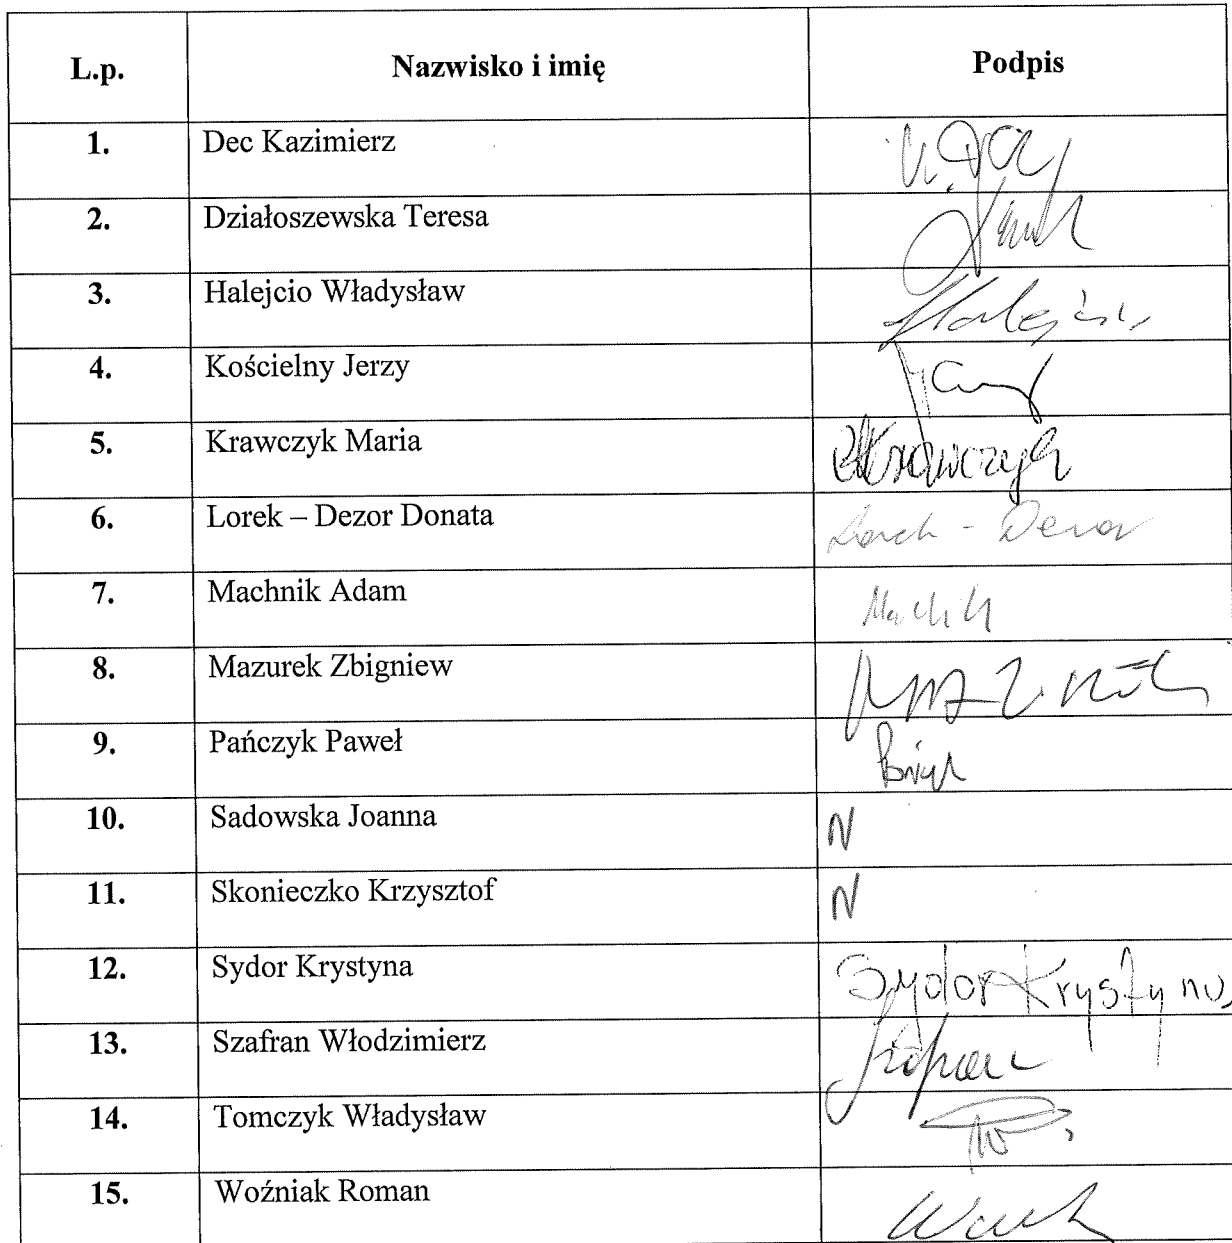 L.p. Nazwisko i imię Podpis
1. Dec Kazimierz
2. Działoszewska Teresa
3. Halejcio Władysław
4. Kościelny Jerzy
5. Krawczyk Maria Krawczyk
6. Lorek – Dezor Donata Lorek - Dezor
7. Machnik Adam
8. Mazurek Zbigniew
9. Pańczyk Paweł
10. Sadowska Joanna N
11. Skonieczko Krzysztof N
12. Sydor Krystyna Sydor Krystyna
13. Szafran Włodzimierz
14. Tomczyk Władysław
15. Woźniak Roman